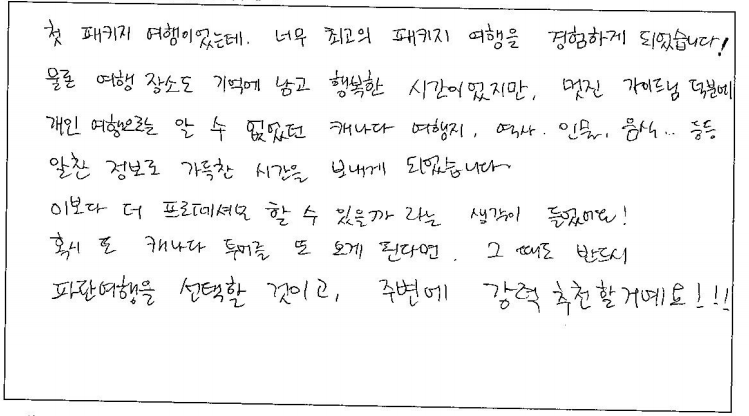 첫 패키지 여행이었는데. 너무 최고의 패키지 여행을 경험하게 되었습니다!
물론 여행 장소도 기억에 남고 행복한 시간이었지만, 멋진 가이드님 덕분에
개인 여행으로는 알 수 없었던 캐나다 여행지, 역사. 인물, 음식.. 등등
알찬 정보로 가득찬 시간을 보내게 되었습니다
이보다 더 프로페셔모 할 수 있을까 라는 생각이 들었어요!
혹시 또 캐나다 투어를 또 오게 된다면. 그 때도 반드시
파란여행을 선택할 것이고, 주변에 강력 추천할거예요!!!